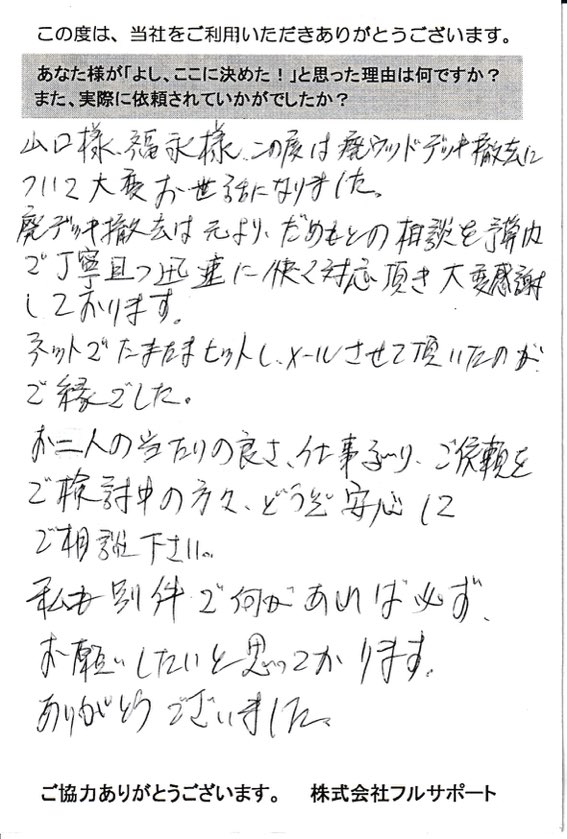 この度は、当社をご利用いただきありがとうございます。
あなた様が「よし、ここに決めた！」と思った理由は何ですか？
また、実際に依頼されていかがでしたか？
山口様、福永様、この度は廃ウッドデッキ撤去に
ついて大変お世話になりました。
廃デッキ撤去は元より、だめもとの相談を予算内
で丁寧且つ迅速に快く対応頂き大変感謝
しております。
ネットでたまたまヒットし、メールさせて頂いたのが
ご縁でした。
お二人の当たりの良さ、仕事ぶり、ご依頼を
ご検討中の方々、どうぞ安心して
ご相談下さい。
私も別件で何かあれば必ず、
お願いしたいと思っております。
ありがとうございました。
ご協力ありがとうございます。 株式会社フルサポート